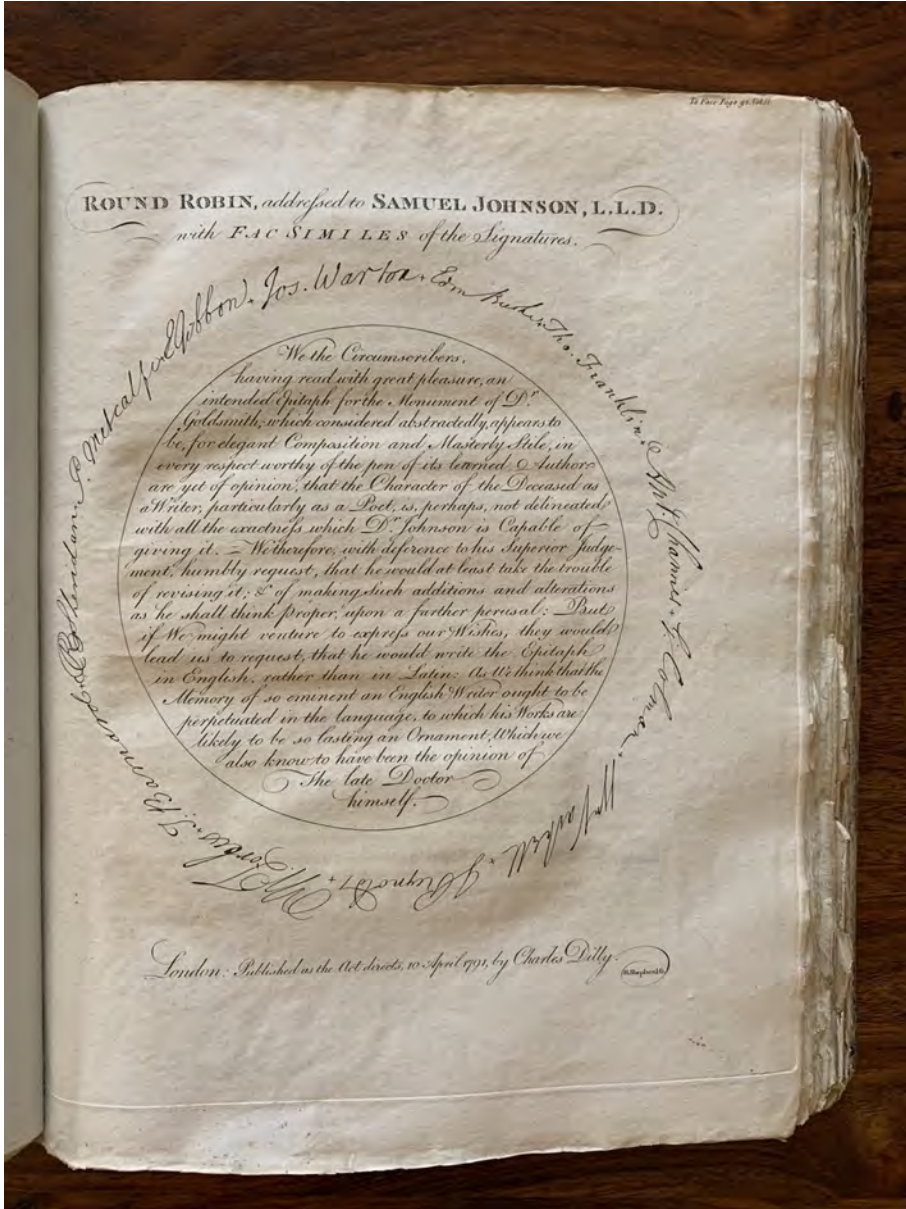 To Face Page 92. Vol. II.
ROUND ROBIN, addressed to SAMUEL JOHNSON, L.L.D.
with FAC SIMILES of the Signatures.
Edm Burke. Tho. Franklin. Ant. Chamier. G. Colman. Wm Vaskell. J Reynolds. W Forbes. T. Barnard. R B Sheridan. P. Metcalfe. E Gibbon. Jos. Warton.
We the Circumscribers,
having read with great pleasure, an
intended Epitaph for the Monument of Dr.
Goldsmith, which considered abstractedly, appears to
be, for elegant Composition and Masterly Stile, in
every respect worthy of the pen of its learned Author
are yet of opinion, that the Character of the Deceased as
a Writer, particularly as a Poet, is, perhaps, not delineated
with all the exactness which Dr. Johnson is Capable of
giving it. — We therefore, with deference to his Superior Judge-
ment, humbly request, that he would at least take the trouble
of revising it; & of making Such additions and alterations
as he shall think proper, upon a further perusal: But
if We might venture to express our Wishes, they would
lead us to request, that he would write the Epitaph
in English, rather than in Latin: As We think that the
Memory of so eminent an English Writer ought to be
perpetuated in the language, to which his Works are
likely to be so lasting an Ornament, Which we
also know to have been the opinion of
The late Doctor
himself.
London: Published as the Act directs, 10 April 1791, by Charles Dilly.